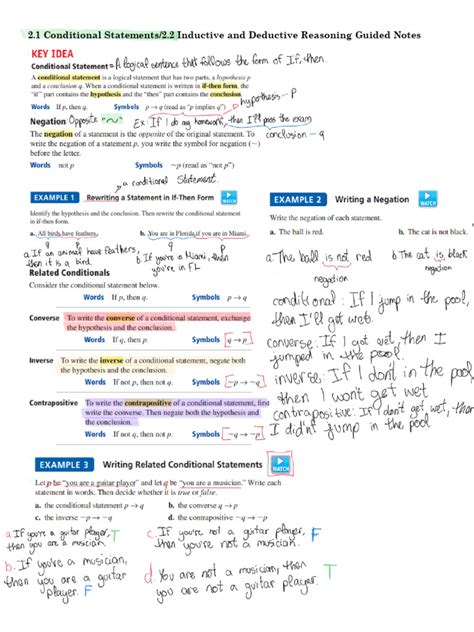 2.1 Conditional Statements/2.2 Inductive and Deductive Reasoning Guided Notes
KEY IDEA
Conditional Statement = A logical sentence that follows the form of If, then.
A conditional statement is a logical statement that has two parts, a hypothesis p
and a conclusion q. When a conditional statement is written in if-then form, the
"if" part contains the hypothesis and the "then" part contains the conclusion.
hypothesis - p
Words If p, then q. Symbols p → q (read as "p implies q")
Negation Opposite "~" Ex: If I do my homework, then I'll pass the exam
conclusion - q
The negation of a statement is the opposite of the original statement. To
write the negation of a statement p, you write the symbol for negation (~)
before the letter.
Words not p Symbols ~p (read as "not p")
a conditional Statement.
EXAMPLE 1 Rewriting a Statement in If-Then Form WATCH
Identify the hypothesis and the conclusion. Then rewrite the conditional statement
in if-then form.
a. All birds have feathers. b. You are in Florida if you are in Miami.
q p q p
a. If an animal have feathers, then it is a bird.
b. If you're in Miami, then you're in FL
EXAMPLE 2 Writing a Negation WATCH
Write the negation of each statement.
a. The ball is red. b. The cat is not black.
a. The ball is not red
negation
b. The cat is black
negation
Related Conditionals
Consider the conditional statement below.
Words If p, then q. Symbols p → q
Converse To write the converse of a conditional statement, exchange
the hypothesis and the conclusion.
Words If q, then p. Symbols q → p
Inverse To write the inverse of a conditional statement, negate both
the hypothesis and the conclusion.
Words If not p, then not q. Symbols ~p → ~q
Contrapositive To write the contrapositive of a conditional statement, first
write the converse. Then negate both the hypothesis and
the conclusion.
Words If not q, then not p. Symbols ~q → ~p
conditional: If I jump in the pool,
then I'll get wet.
converse: If I got wet, then I
jumped in the pool.
inverse: If I don't in the pool
then I won't get wet
contrapositive: If I don't get wet, then
I didn't jump in the pool.
EXAMPLE 3 Writing Related Conditional Statements WATCH
Let p be "you are a guitar player" and let q be "you are a musician." Write each
statement in words. Then decide whether it is true or false.
a. the conditional statement p → q b. the converse q → p
c. the inverse ~p → ~q d. the contrapositive ~q → ~p
a. If you're a guitar player, T
then you are a musician.
b. If you're a musician,
then you are a guitar
player. F
c. If you're not a guitar player, F
then you're not a musician.
d. You are not a musician, then
you are not a guitar player. T